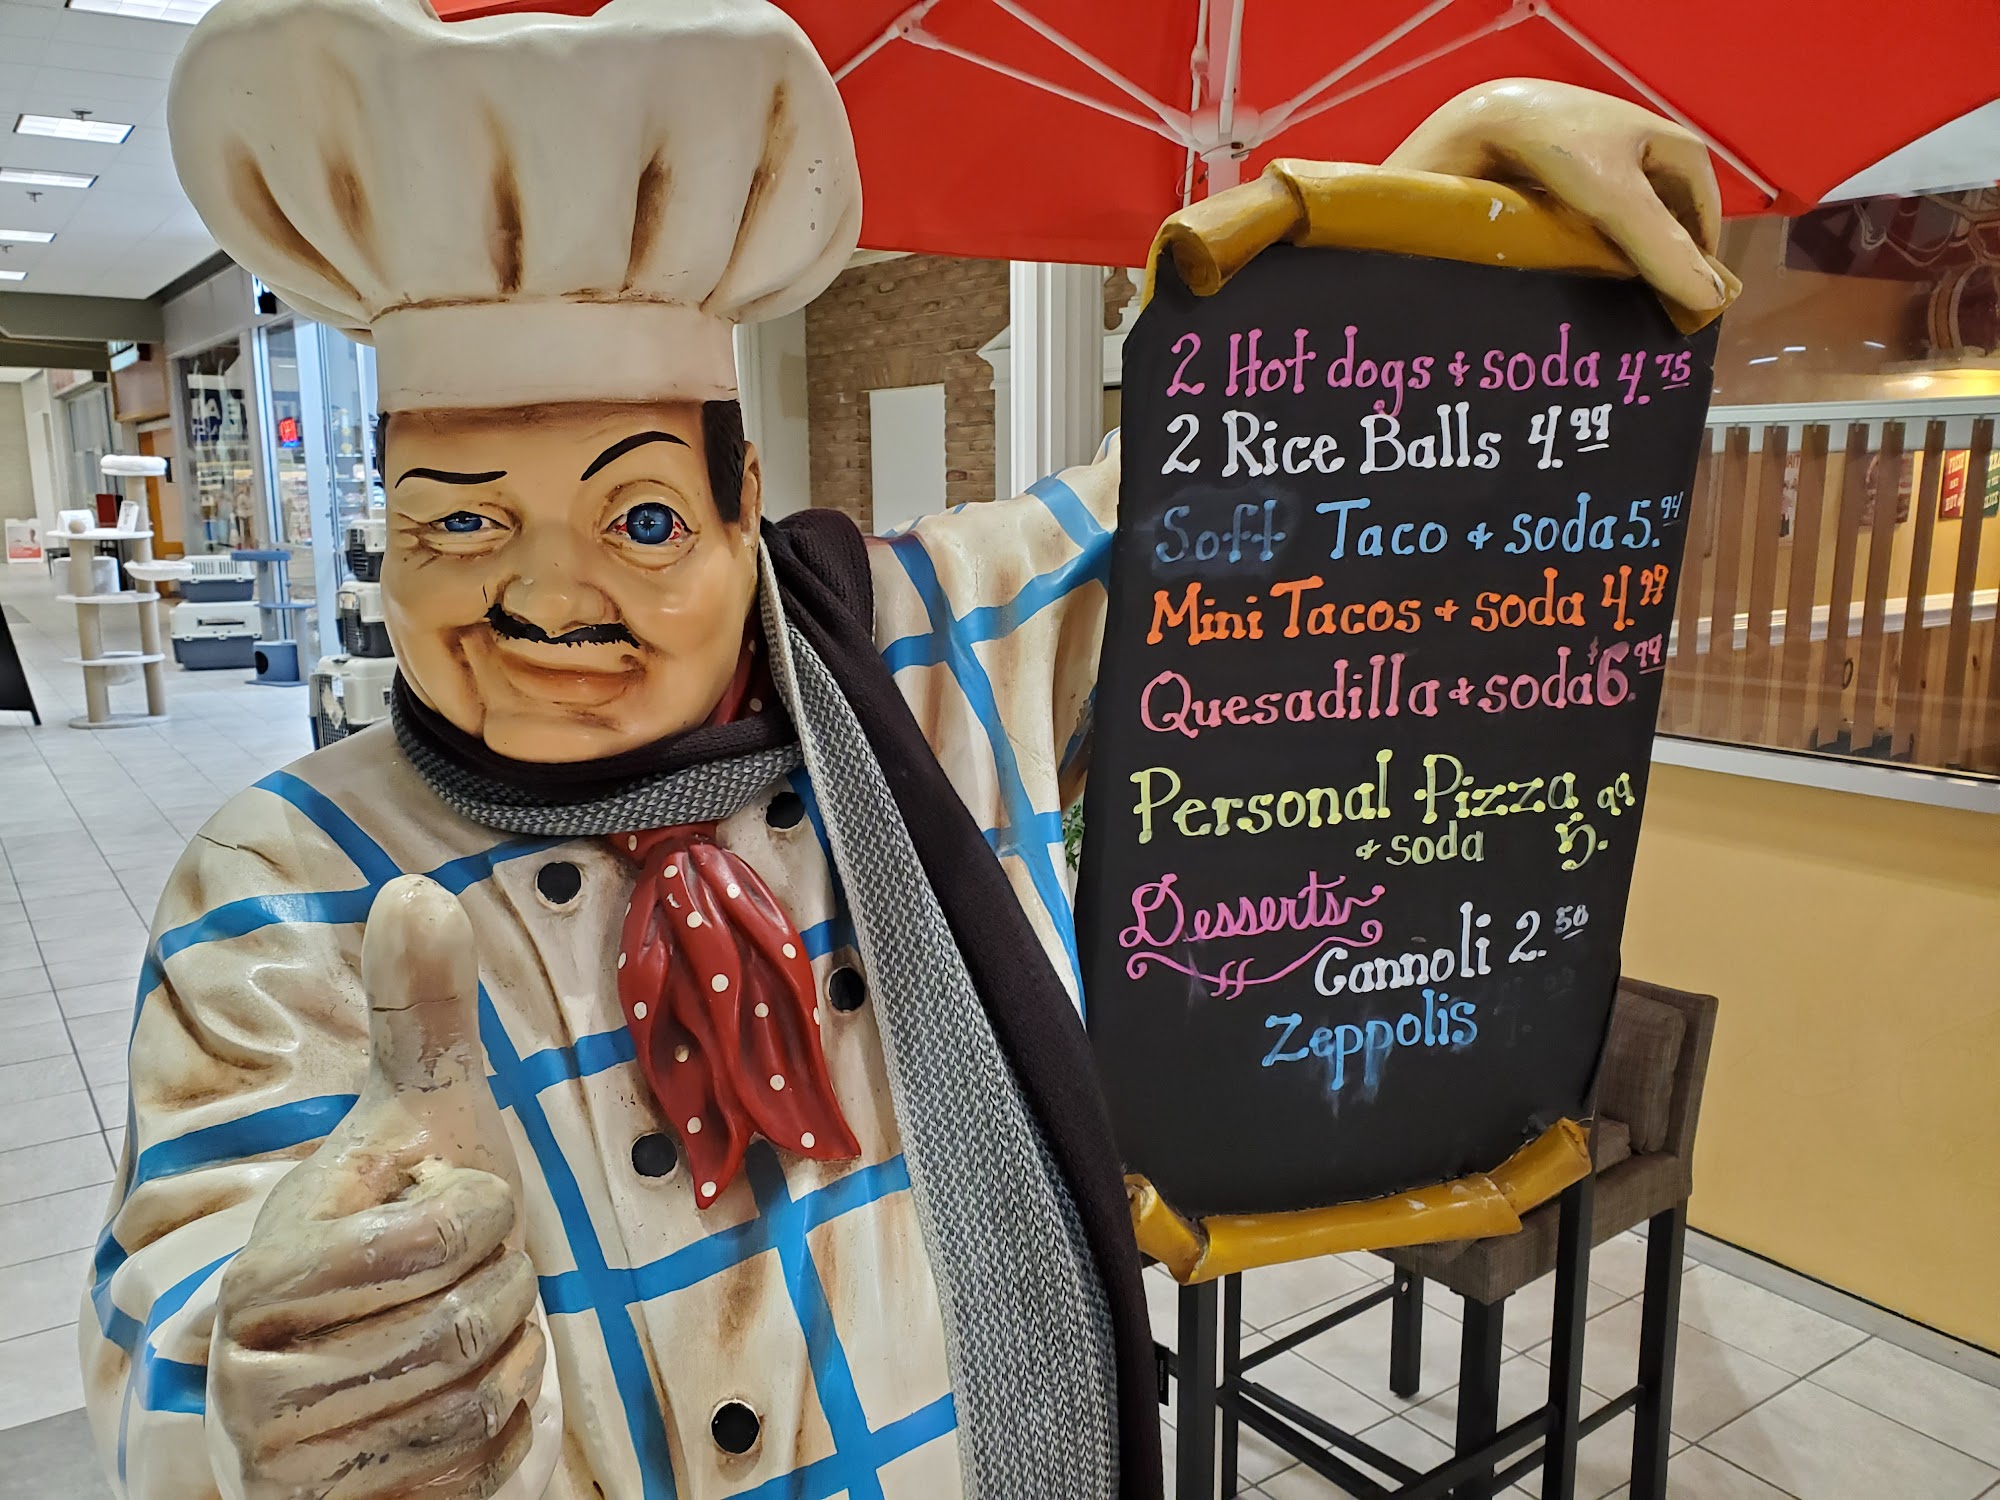 2 Hot dogs & soda 4.75
2 Rice Balls 4.99
Soft Taco & soda 5.94
Mini Tacos & soda 4.99
Quesadilla & soda $6.99
Personal Pizza
& soda 5.99
Desserts
Cannoli 2.50
Zeppolis